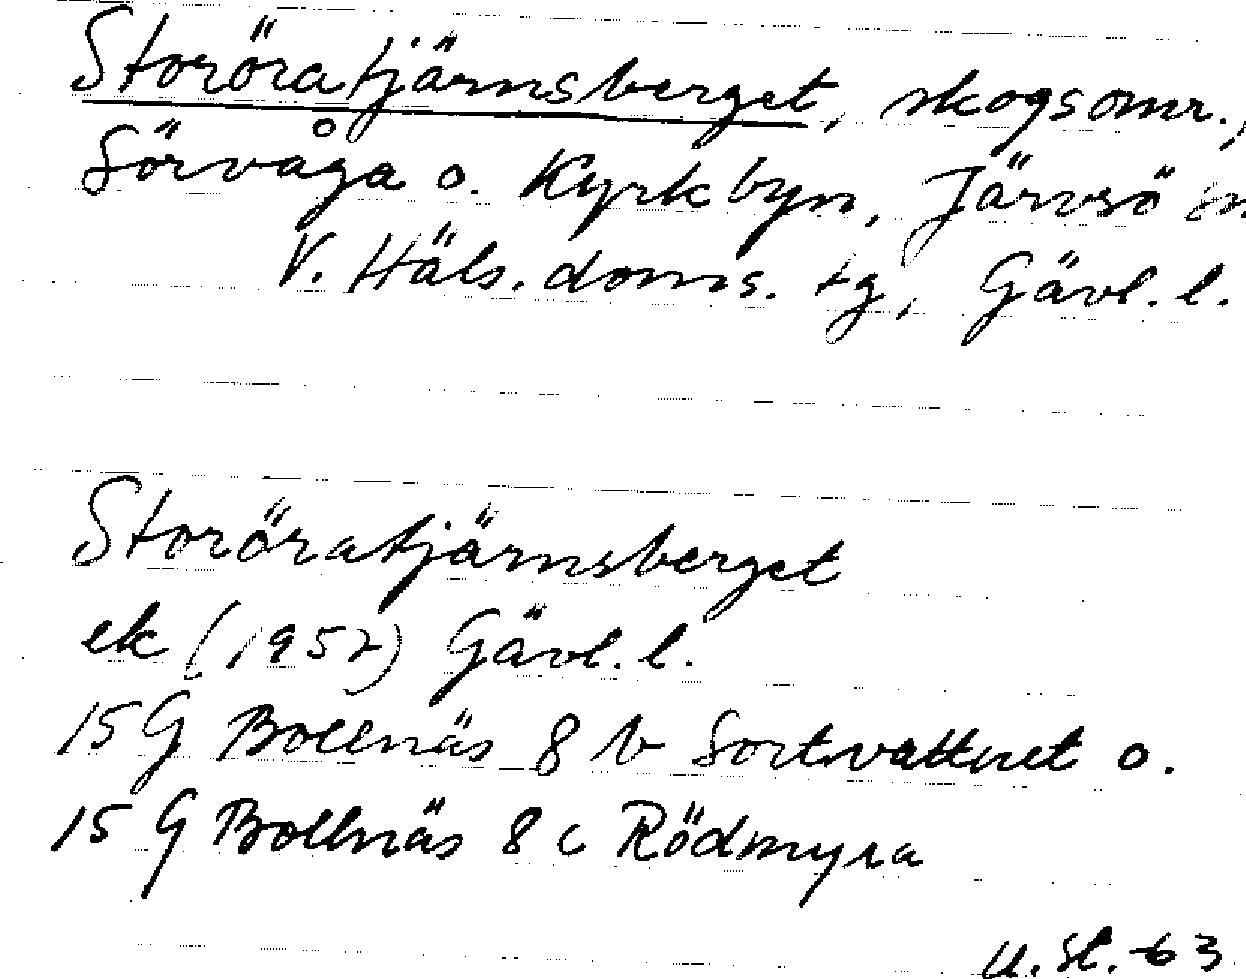 Storöratjärnsberget, skogsomr.,
Sörvåga o. Kyrkbyn, Järvsö sn
V. Häls. doms. tg, Gävl. l.
Storöratjärnsberget
ek (1952) Gävl. l.
15 G Bollnäs 8 b Sortvattnet o.
15 G Bollnäs 8 c Rödmyra
U. St. -63